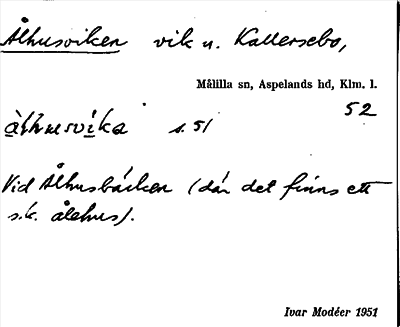 Ålhusviken vik u. Kallersebo,
Målilla sn, Aspelands hd, Klm. l.
52
ålhusvika s. 51
Vid Ålhusbäcken (där det finns ett
s.k. ålehus).
Ivar Modéer 1951